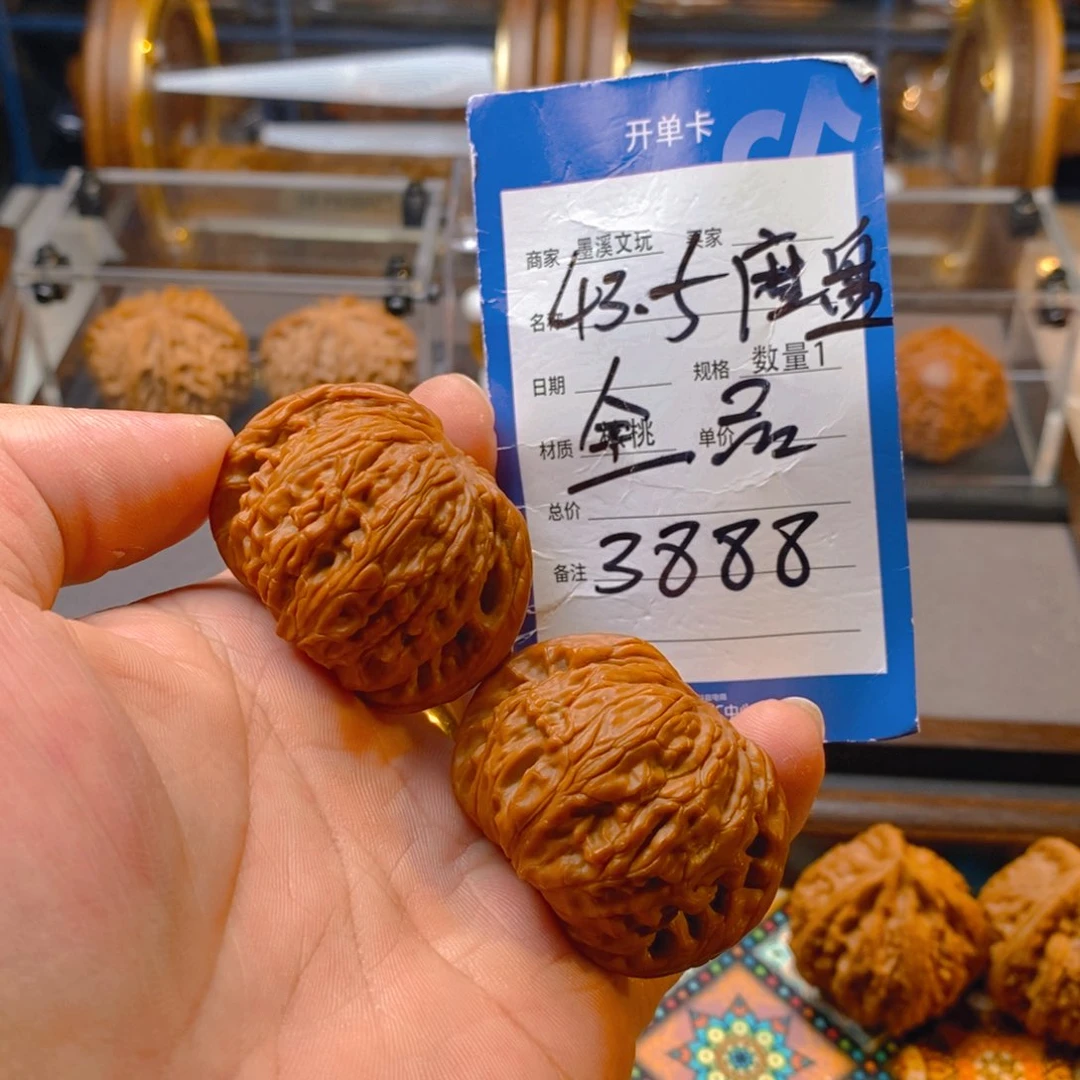 开单卡
商家 墨溪文玩 买家
43.5磨盘
名称
日期 规格 数量1
全品
材质 核桃 单价
总价
备注 3888